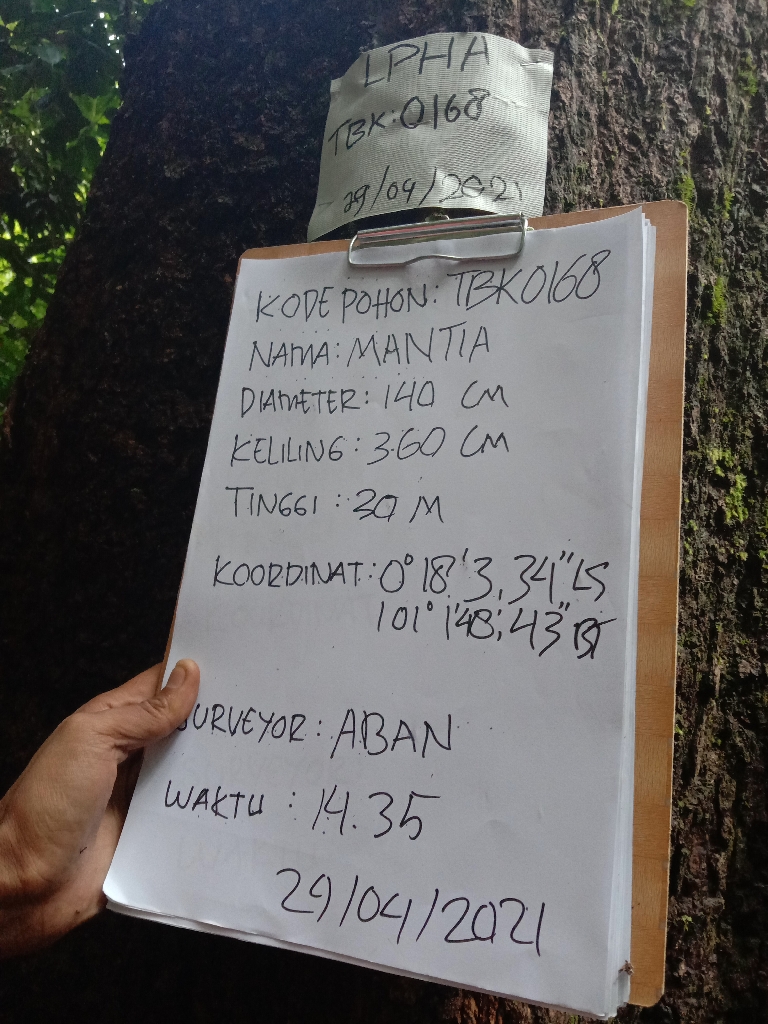 LPHA
TBK:0168
29/04/2021
KODE POHON: TBK0168
NAMA: MANTIA
DIAMETER: 140 CM
KELILING: 3.60 CM
TINGGI: 30 M
KOORDINAT: 0° 18' 3,34" LS
101° 1'48,43" BT
SURVEYOR: ABAN
WAKTU: 14.35
29/04/2021